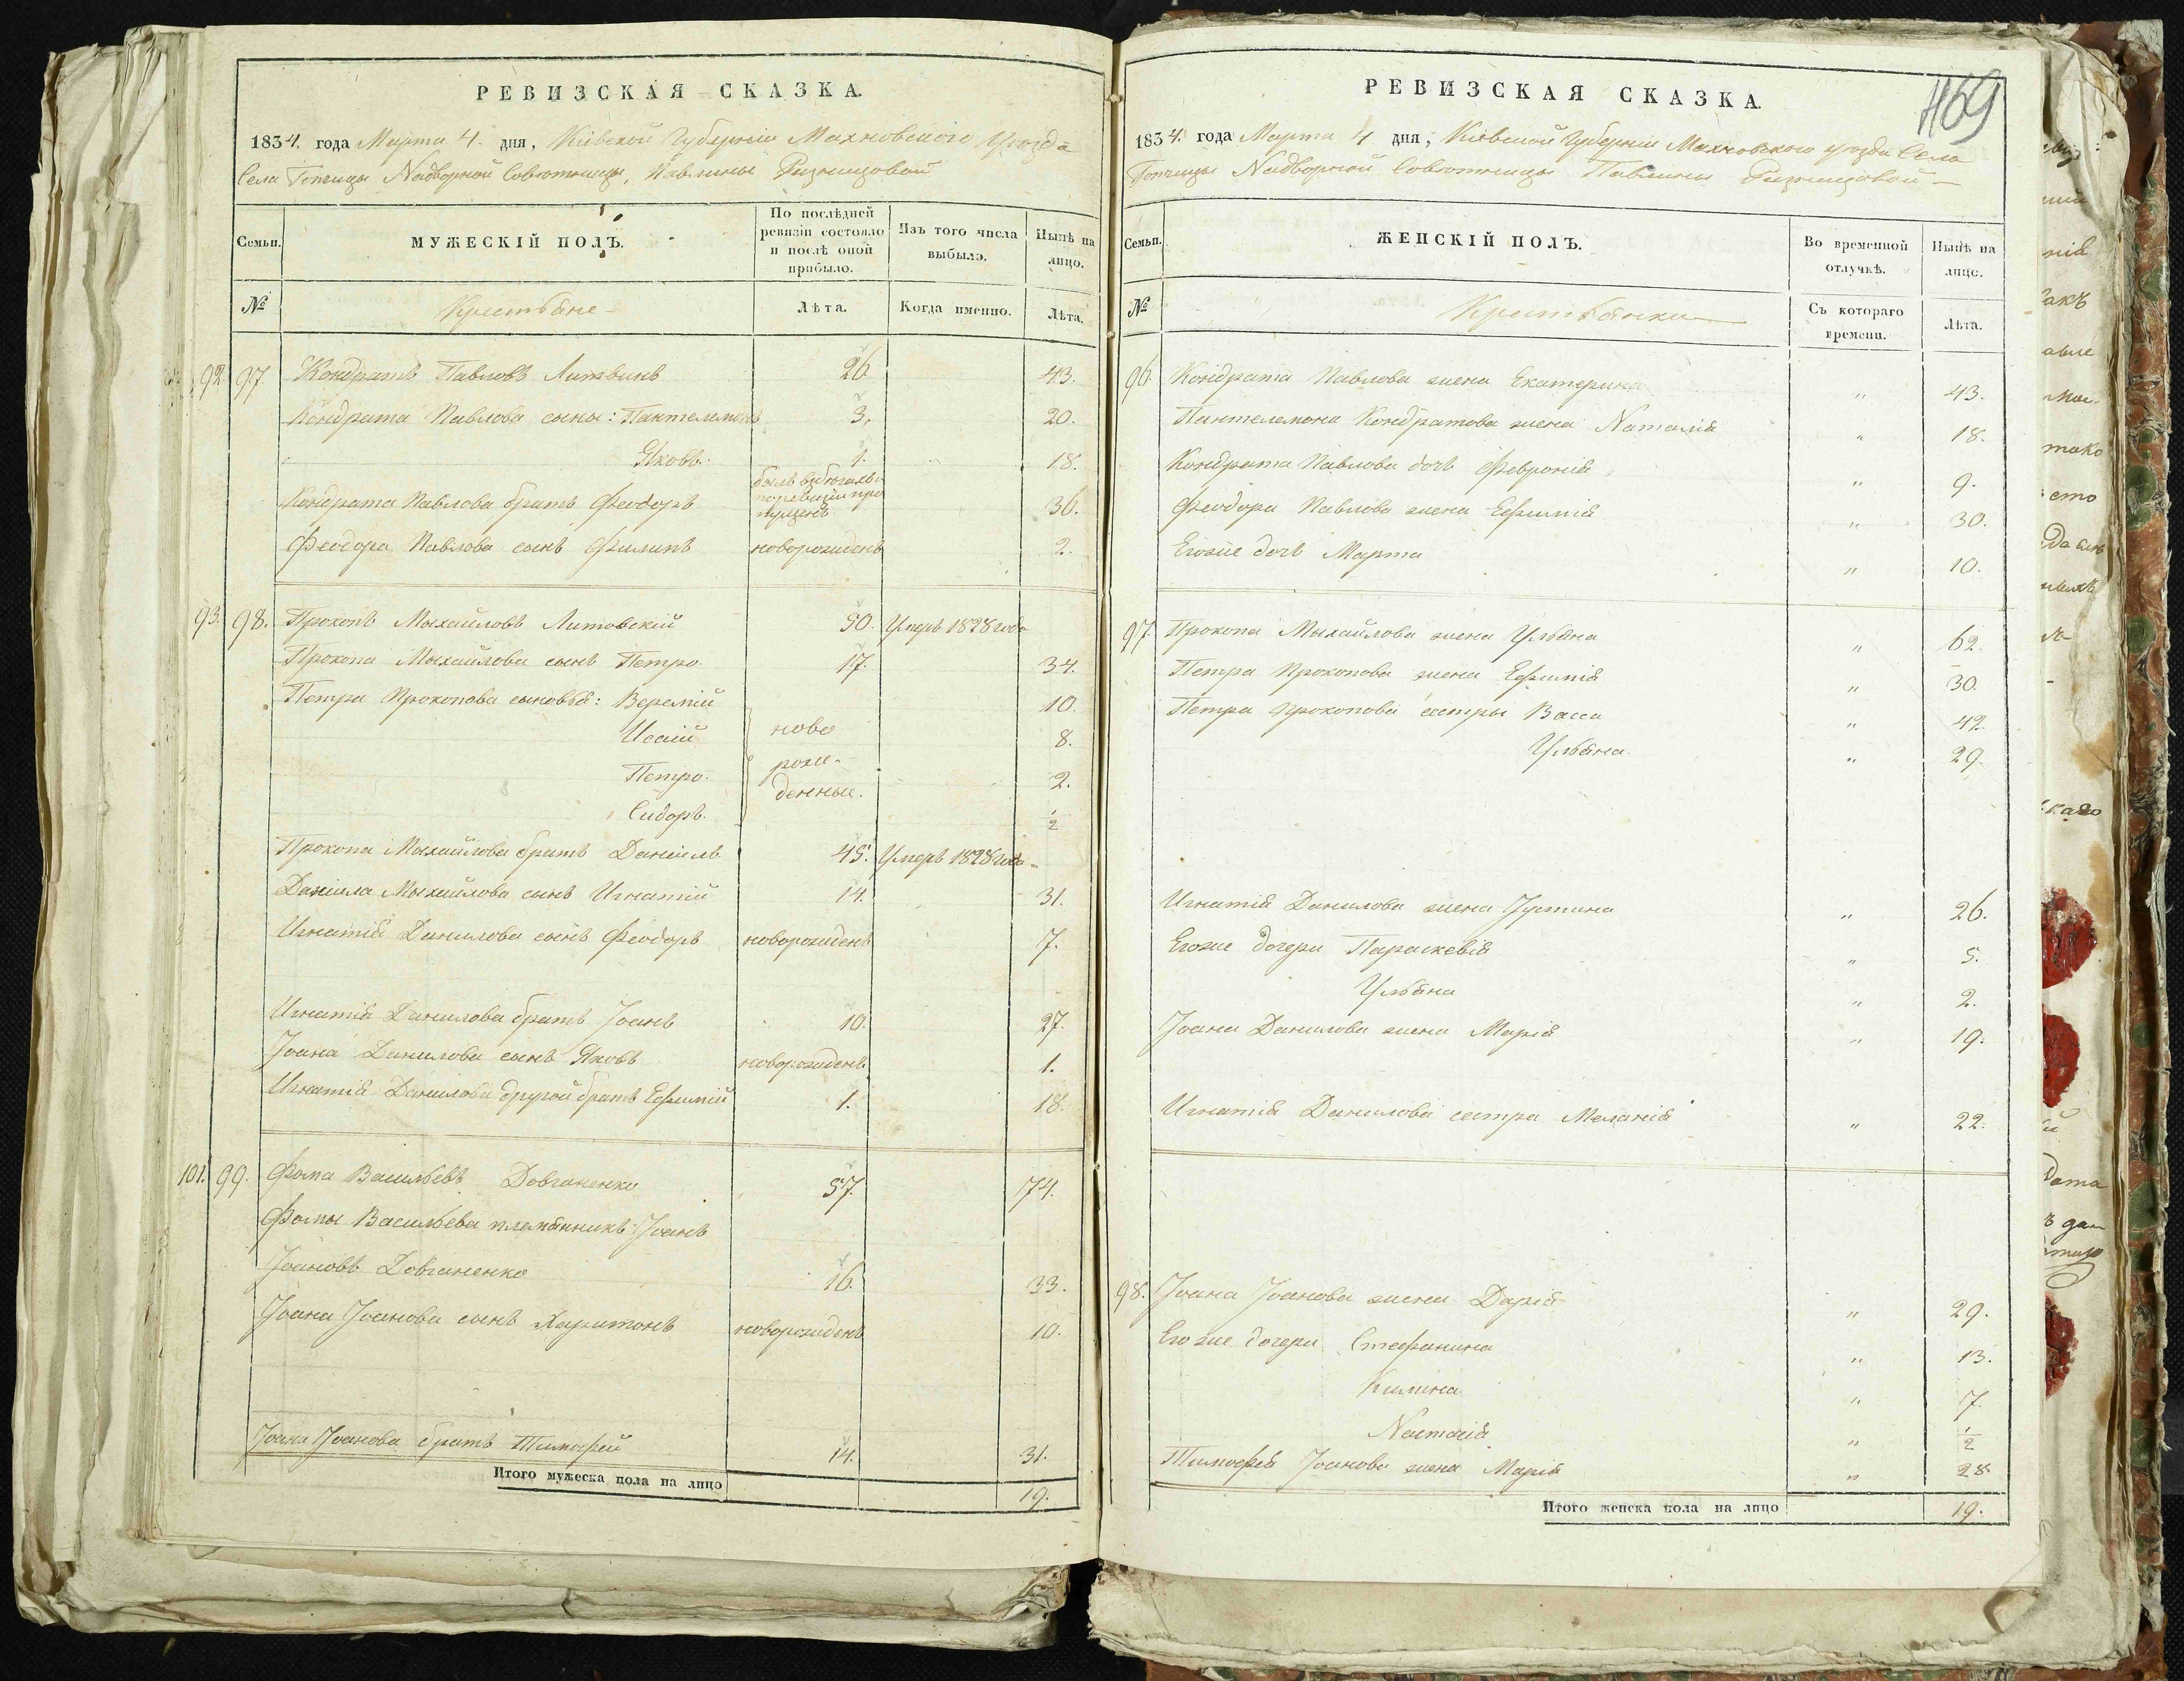 РЕВИЗСКАЯ СКАЗКА.
1834. года Марта 4. дня, Кіевской Губерніи Махновского Уѣзда
Села Топчицы Надворной Совѣтницы, Павлины Ризницовой
Семьи.
МУЖЕСКІЙ ПОЛЪ.
По послѣдней ревизіи состояло и послѣ оной прибыло.
Изъ того числа выбыло.
Нынѣ на лицо.
№
Крестьяне
Лѣта.
Когда именно.
Лѣта.
92. 97 Кондратъ Павловъ Литвинъ 26. 43.
Кондрата Павлова сыны: Пантелемонъ 3. 20.
Яковъ. 1. 18.
Кондрата Павлова братъ Феодоръ былъ въ бѣгахъ и по ревизіи пропущенъ 36.
Феодора Павлова сынъ Филипъ новорожденъ 2.
93. 98. Прокопъ Мыхайловъ Литовскій 50. Умеръ 1828 года
Прокопа Мыхайлова сынъ Петро. 17. 34.
Петра Прокопова сыновья: Веремій 10.
Исаій ново 8.
Петро. рож- 2.
Сидоръ. денные. 1/2
Прокопа Мыхайлова братъ Даніилъ 45. Умеръ 1828 года
Даніила Мыхайлова сынъ Игнатій 14. 31.
Игнатія Данилова сынъ Феодоръ новорожденъ 7.
Игнатія Данилова братъ Іоанъ 10. 27.
Іоана Данилова сынъ Яковъ новорожденъ 1.
Игнатія Данилова другой братъ Ефимій 1. 18.
101. 99. Фома Васильевъ Довганенко 57. 74.
Фомы Васильева племянникъ: Іоанъ
Іоановъ Довганенко 16. 33.
Іоана Іоанова сынъ Харитонъ новорожденъ 10.
Іоана Іоанова братъ Тимофей 14. 31.
Итого мужеска пола на лицо 19.
1169
РЕВИЗСКАЯ СКАЗКА.
1834. года Марта 4 дня, Кіевской Губерніи Махновского уѣзда Села
Топчицы Надворной Совѣтницы Павлины Ризницовой
Семьи.
ЖЕНСКІЙ ПОЛЪ.
Во временной отлучкѣ.
Нынѣ на лицо.
№
Крестьянки
Съ котораго времени.
Лѣта.
96. Кондрата Павлова жена Екатерина " 43.
Пантелемона Кондратова жена Наталія " 18.
Кондрата Павлова дочь Февронія " 9.
Феодора Павлова жена Ефимія " 30.
Егоже дочь Марта " 10.
97. Прокопа Мыхайлова жена Ульяна " 62.
Петра Прокопова жена Ефимія " 30.
Петра Прокопова сестры Васса " 42.
Ульяна. " 29.
Игнатія Данилова жена Іустина " 26.
Егоже дочери Параскевія " 5.
Ульяна " 2.
Іоана Данилова жена Марія " 19.
Игнатія Данилова сестра Меланія " 22.
98. Іоана Іоанова жена Дарія " 29.
Его же дочери Стефанина " 13.
Килина " 7.
Настасія " 1/2
Тимофея Іоанова жена Марія " 28
Итого женска пола на лицо 19.